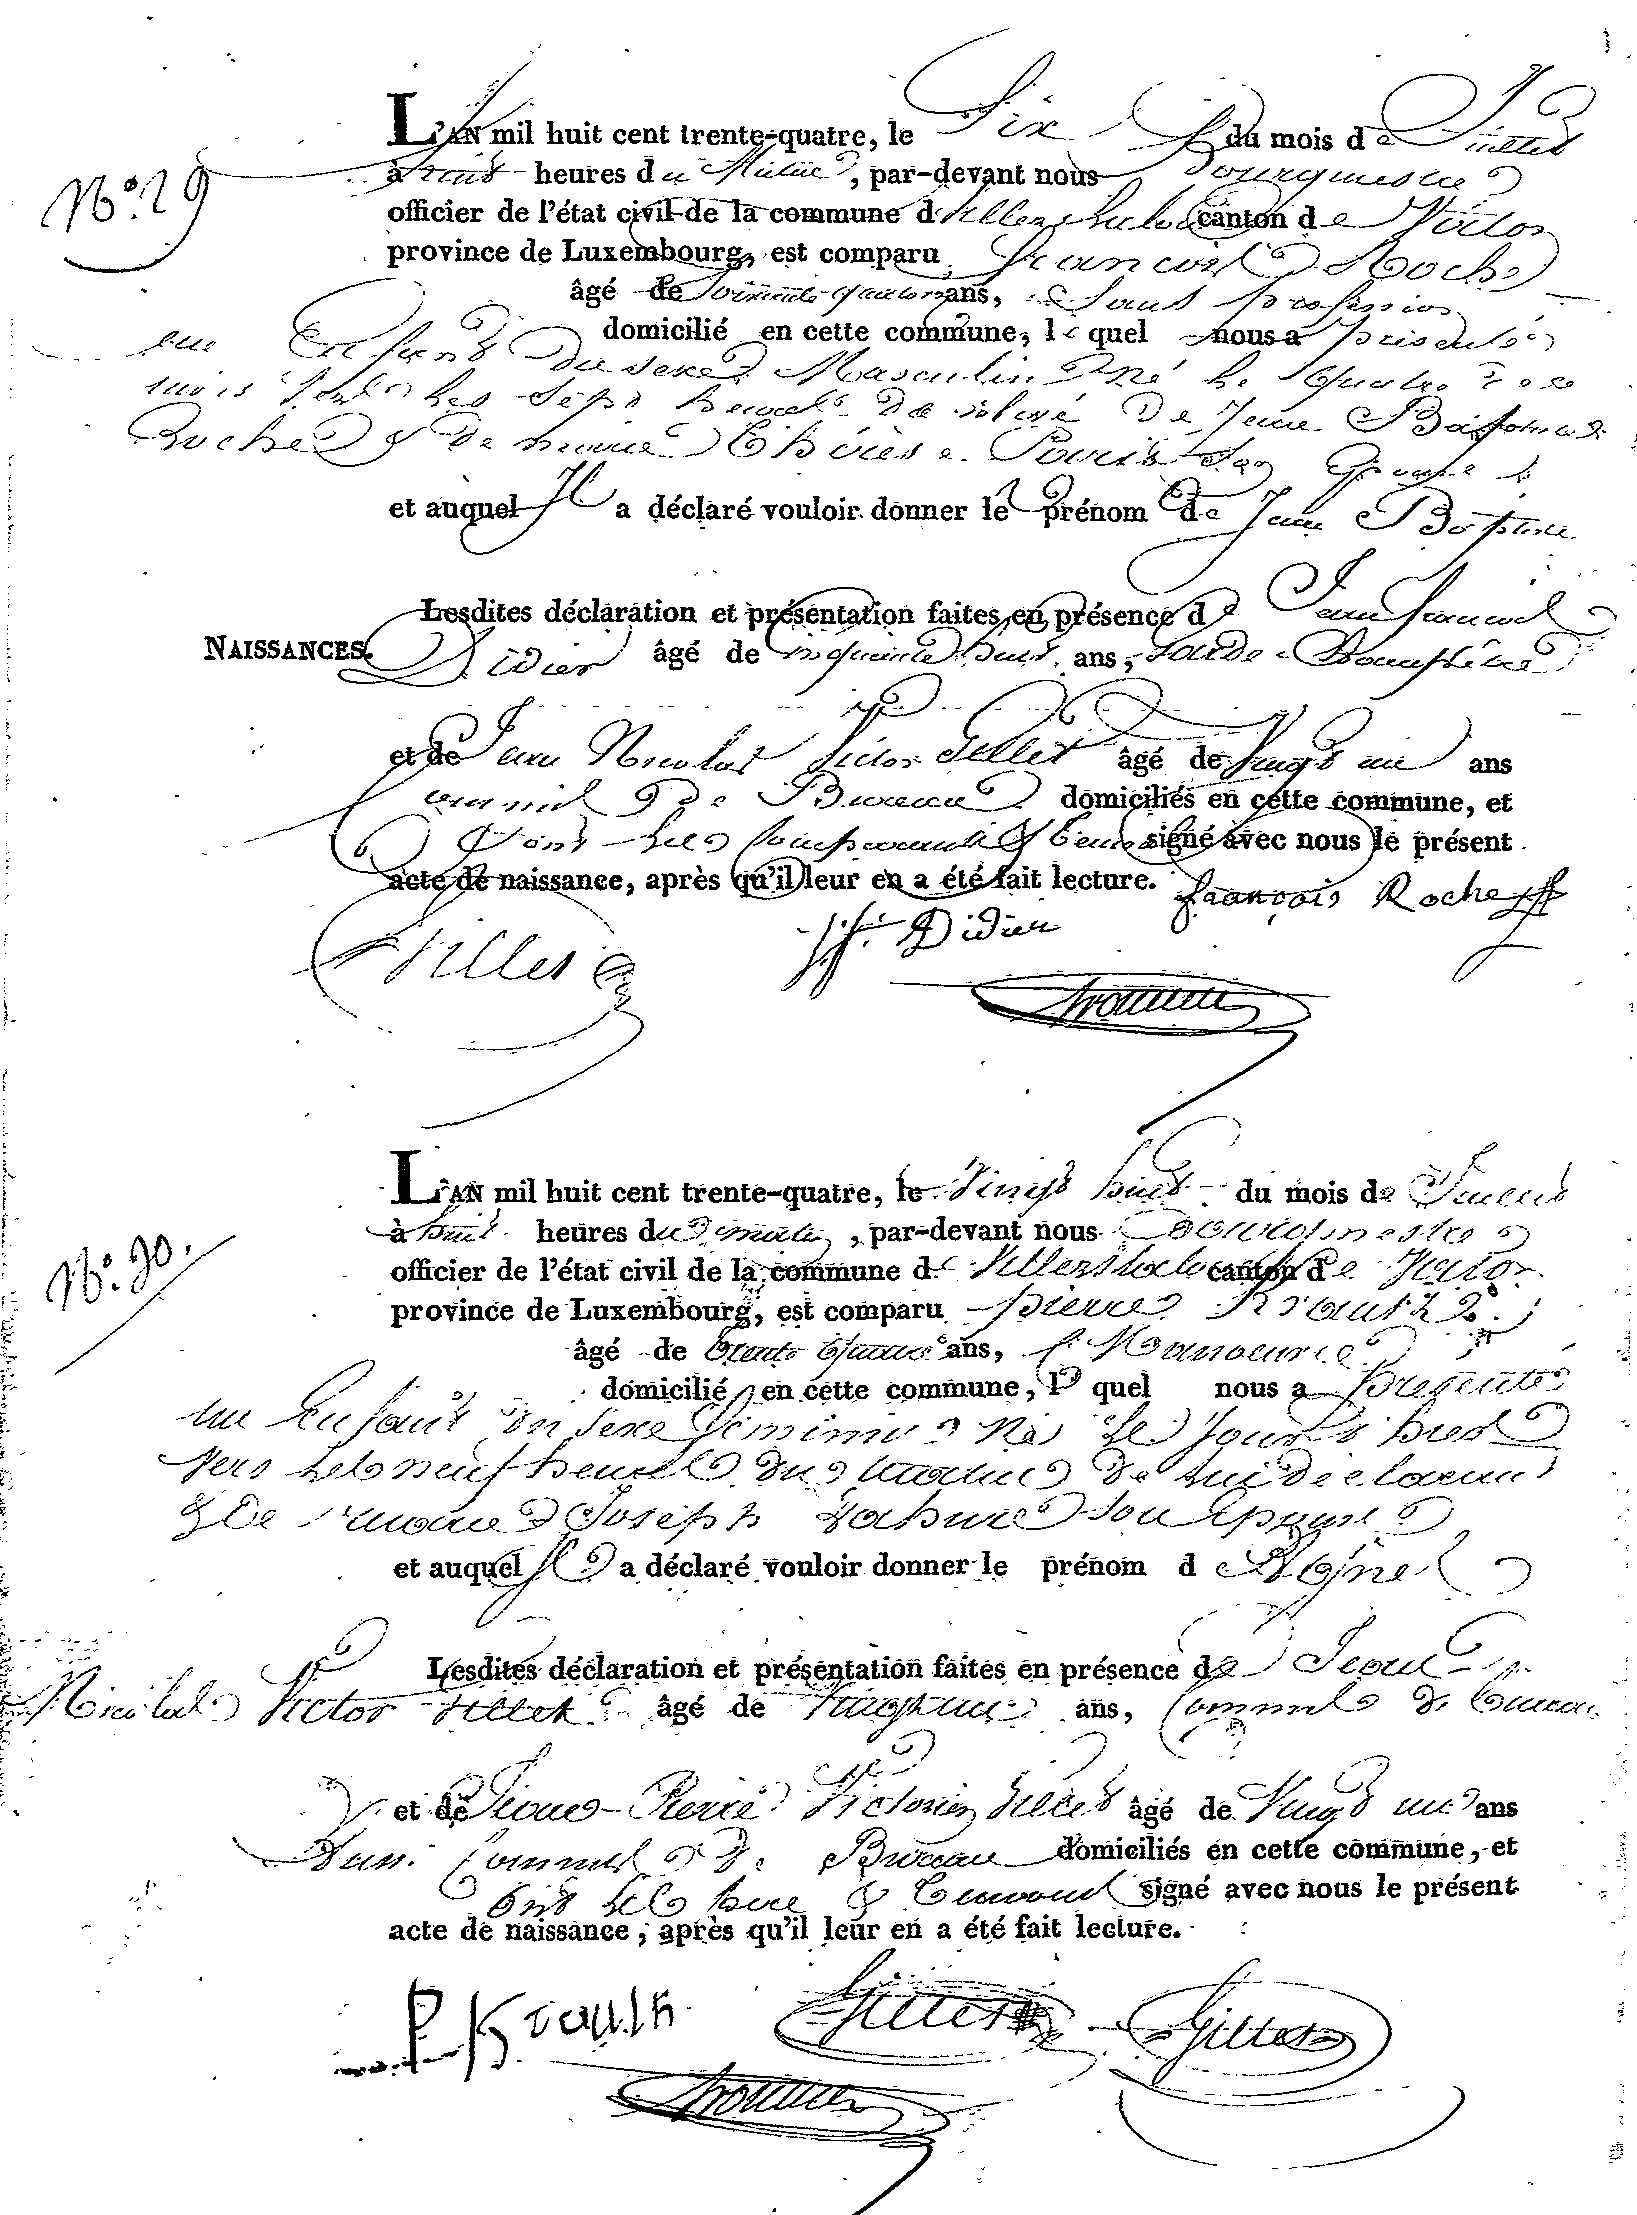 L'AN mil huit cent trente-quatre, le Six du mois de Juillet
N.º 29
à huit heures du Matin, par-devant nous Bourgmestre
officier de l'état civil de la commune de Villers la loue canton de Virton
province de Luxembourg, est comparu François Roche
âgé de soixante quatorze ans, sans profession
domicilié en cette commune, lequel nous a présenté
un Enfant du sexe Masculin Né le quatre de ce
mois vers les sept heures de relevé de Jean Baptiste
Roche & de marie Thérèse Pouris son Epouse
et auquel Il a déclaré vouloir donner le prénom de Jean Baptiste
Lesdites déclaration et présentation faites en présence de Jean francois
NAISSANCES.
Didier âgé de cinquante huit ans, Garde Champêtre
et de Jean Nicolas Victor Gillet âgé de Vingt un ans
commis de Bureau domiciliés en cette commune, et
Ont les comparants & temoins signé avec nous le présent
acte de naissance, après qu'il leur en a été fait lecture.
françois Roche
J. f. Didier
Gillet
L'AN mil huit cent trente-quatre, le Vingt huit du mois de Juillet
à huit heures du matin, par-devant nous Bourgmestre
N.º 30.
officier de l'état civil de la commune de Villers la loue canton de Virton
province de Luxembourg, est comparu Pierre Krauth
âgé de trente quatre ans, Manoeuvre
domicilié en cette commune, lequel nous a présenté
un Enfant du sexe féminin Né le Jour d'hier
vers les neuf heures du matin de lui déclarant
& de marie Joseph Dahure son épouse
et auquel Il a déclaré vouloir donner le prénom d
Lesdites déclaration et présentation faites en présence de Jean
Nicolas Victor Gillet âgé de Vingt un ans, Commis de bureau
et de Jean Pierre Victorien Gillet âgé de Vingt un ans
Aussi Commis de Bureau domiciliés en cette commune, et
Ont les père & temoins signé avec nous le présent
acte de naissance, après qu'il leur en a été fait lecture.
P. Krauth
Gillet
Gillet